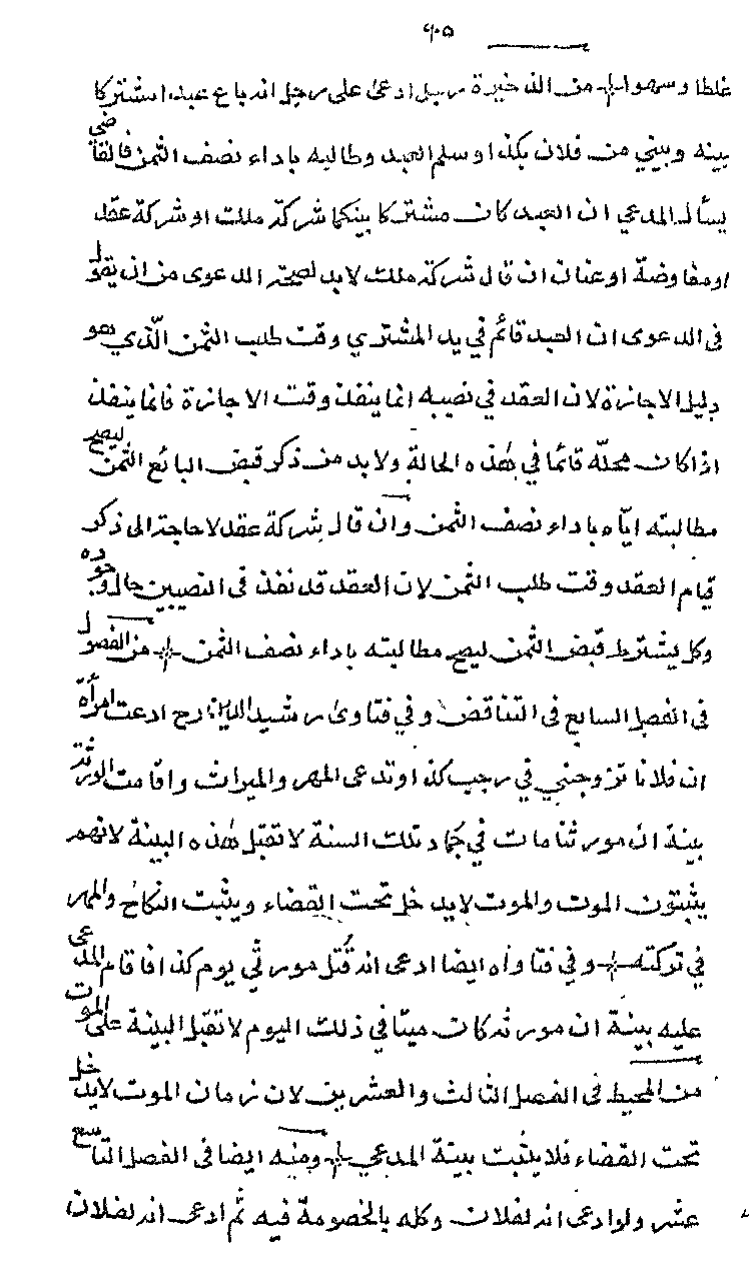 ٩٠٥
غلطا وسهوا من الذخيرة رجل ادعى على رجل انه باع عبدا مشتركا
بينه وبيني من فلان بكذا وسلم العبد وطالبه باداء نصف الثمن فالقاضي
يسأل المدعي ان العبد كان مشتركا بينكما شركة ملك او شركة عقد
او مفاوضة او عنان ان قال شركة ملك لابد لصحة الدعوى من ان يقول
في الدعوى ان العبد قائم في يد المشتري وقت طلب الثمن الّذي هو
دليل الاجازة لان العقد في نصيبه انما ينفذ وقت الاجازة فانما ينفذ
اذا كان محلّه قائما في هٰذه الحالة ولابد من ذكر قبض البائع الثمن ليصح
مطالبته ايّاه باداء نصف الثمن وان قال شركة عقد لا حاجة الى ذكر
قيام العقد وقت طلب الثمن لان العقد قد نفذ في النصيبين حال وجوده
وكل يشترط قبض الثمن ليصح مطالبته باداء نصف الثمن من الفصول
في الفصل السابع في التناقض وفي فتاوى رشيد الدين رح ادعت امرأة
ان فلانا تزوجني في رجب كذا وتدعى المهر والميراث واقامت الورثة
بينة ان مورثنا مات في جُماد تلك السنة لا تقبل هٰذه البينة لانهم
يثبتون الموت والموت لا يدخل تحت القضاء ويثبت النكاح والمهر
في تركته وفي فتاواه ايضا ادعى انه قُتل مورثي يوم كذا فاقام المدعى
عليه بينة ان مورثه كان ميتا في ذلك اليوم لا تقبل البينة على الموت
من المحيط في الفصل الثالث والعشرين لان زمان الموت لا يدخل
تحت القضاء فلا يثبت بينة المدعي ومنه ايضا في الفصل التاسع
عشر ولو ادعى انه لفلان وكله بالخصومة فيه ثم ادعى انه لفلان